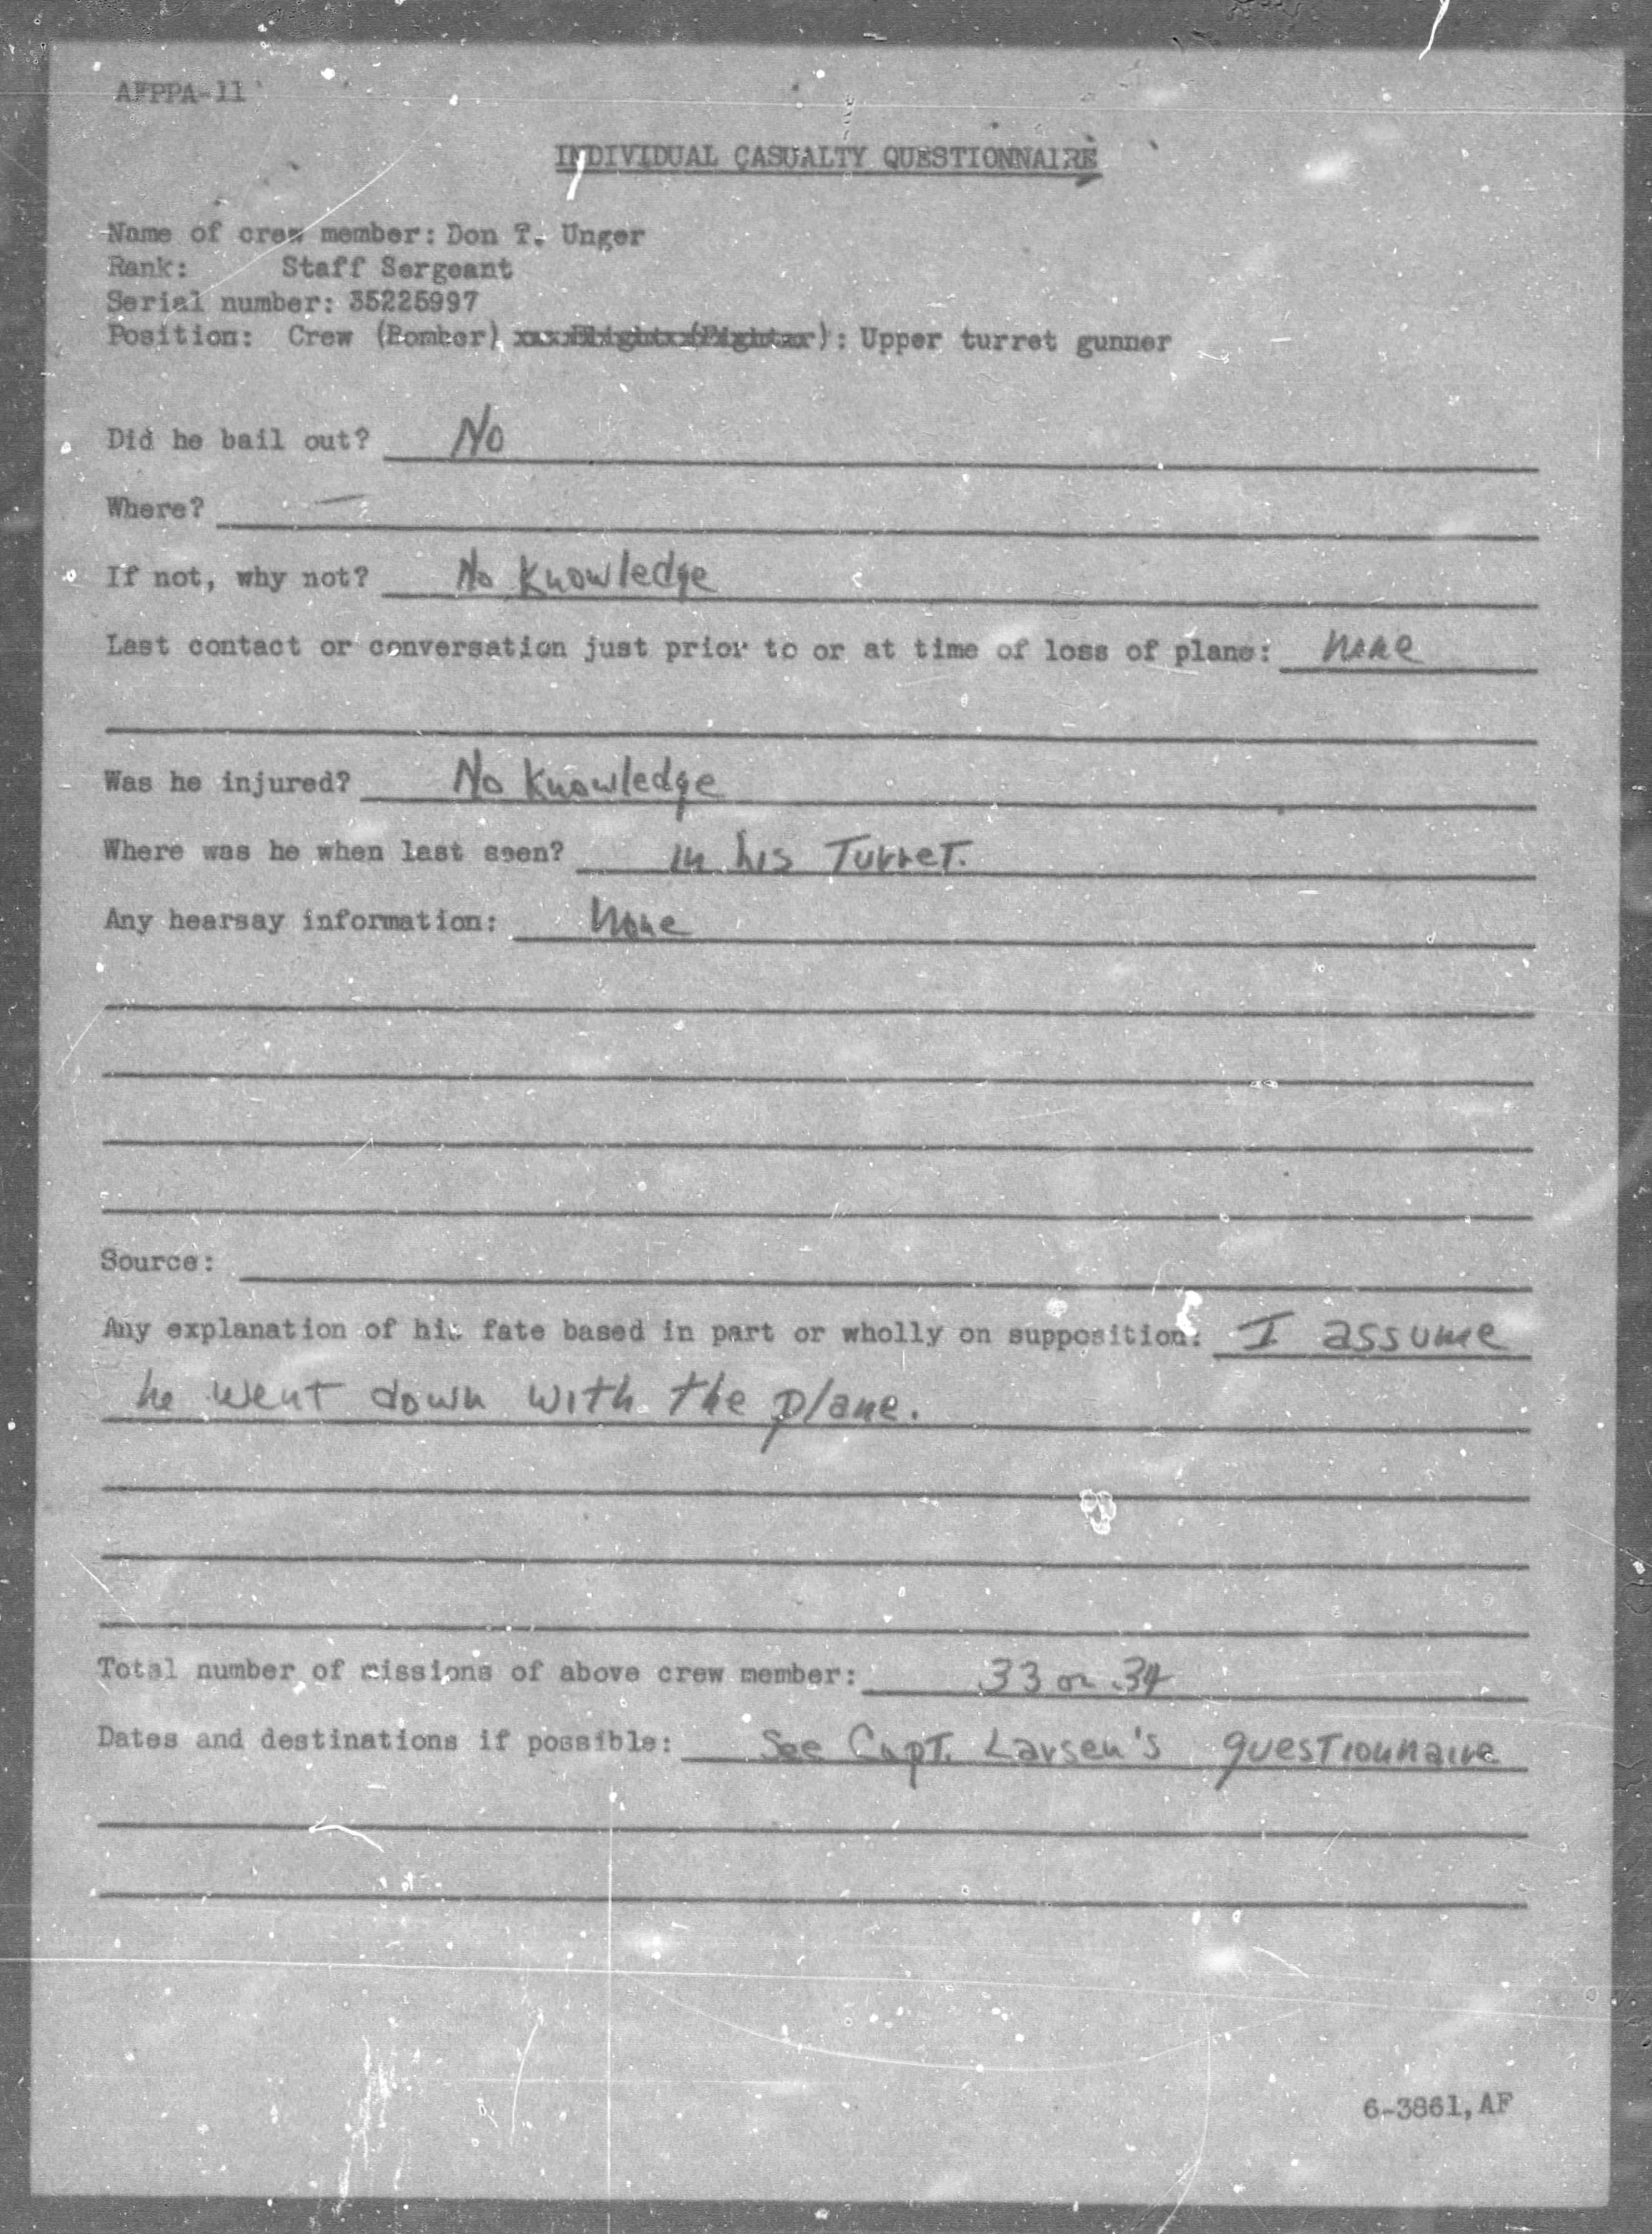 AFPPA-11
INDIVIDUAL CASUALTY QUESTIONNAIRE
Name of crew member: Don T. Unger
Rank: Staff Sergeant
Serial number: 35225997
Position: Crew (Bomber) : Upper turret gunner
Did he bail out? No
Where? —
If not, why not? No Knowledge
Last contact or conversation just prior to or at time of loss of plane: none
Was he injured? No Knowledge
Where was he when last seen? in his Turret.
Any hearsay information: None
Source:
Any explanation of his fate based in part or wholly on supposition: I assume
he went down with the plane.
Total number of missions of above crew member: 33 or 34
Dates and destinations if possible: See Capt. Larsen's questionnaire
6-3861, AF